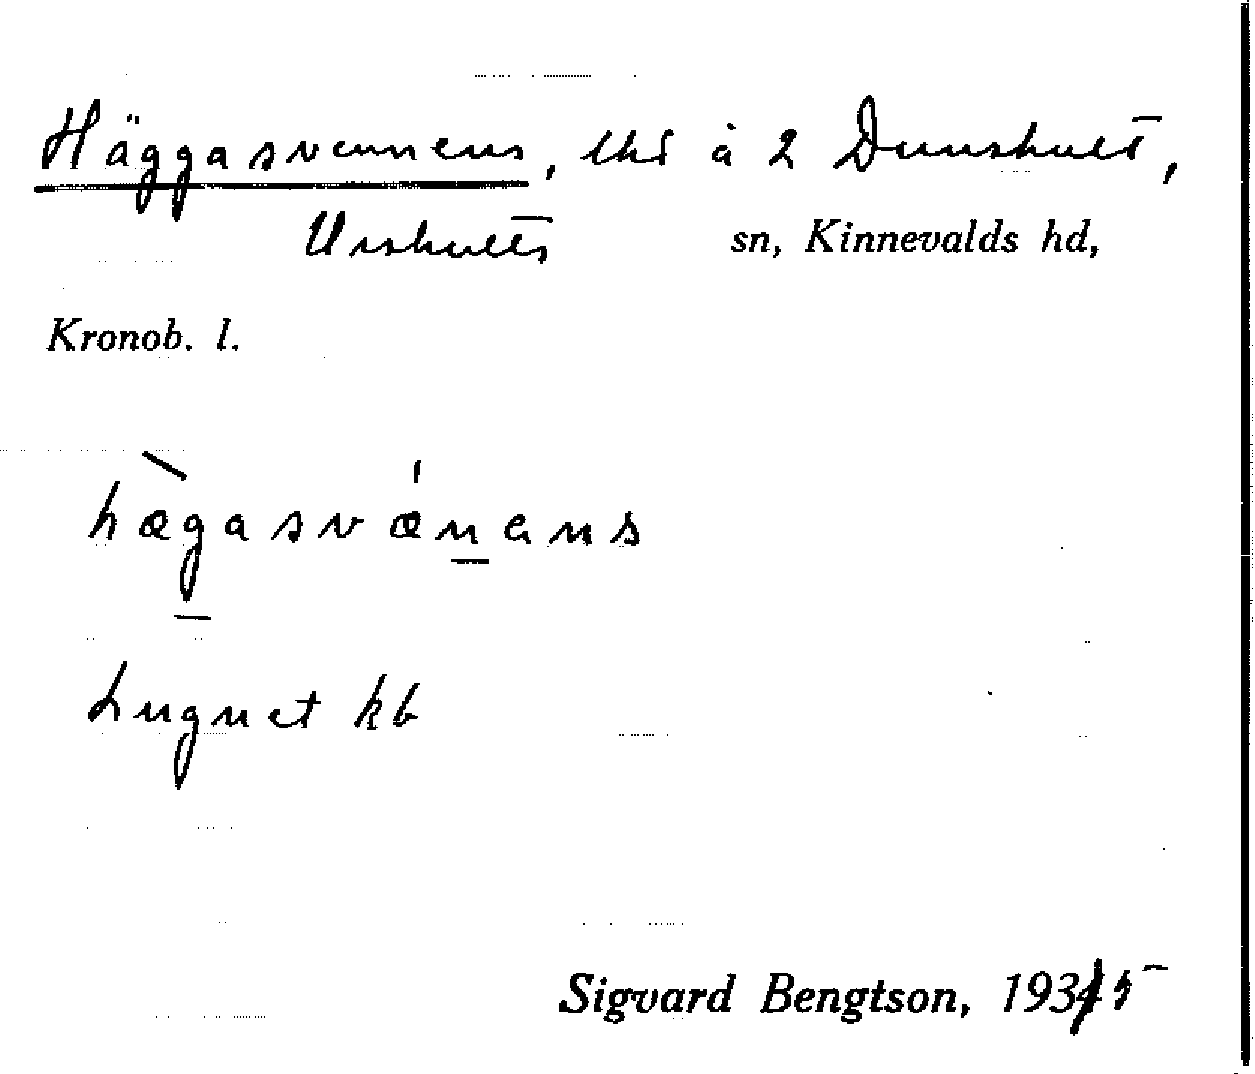 Häggasvennens, lht å 2 Dunshult,
Urshults sn, Kinnevalds hd,
Kronob. l.
hægasvænans
Lugnet kb
Sigvard Bengtson, 1935